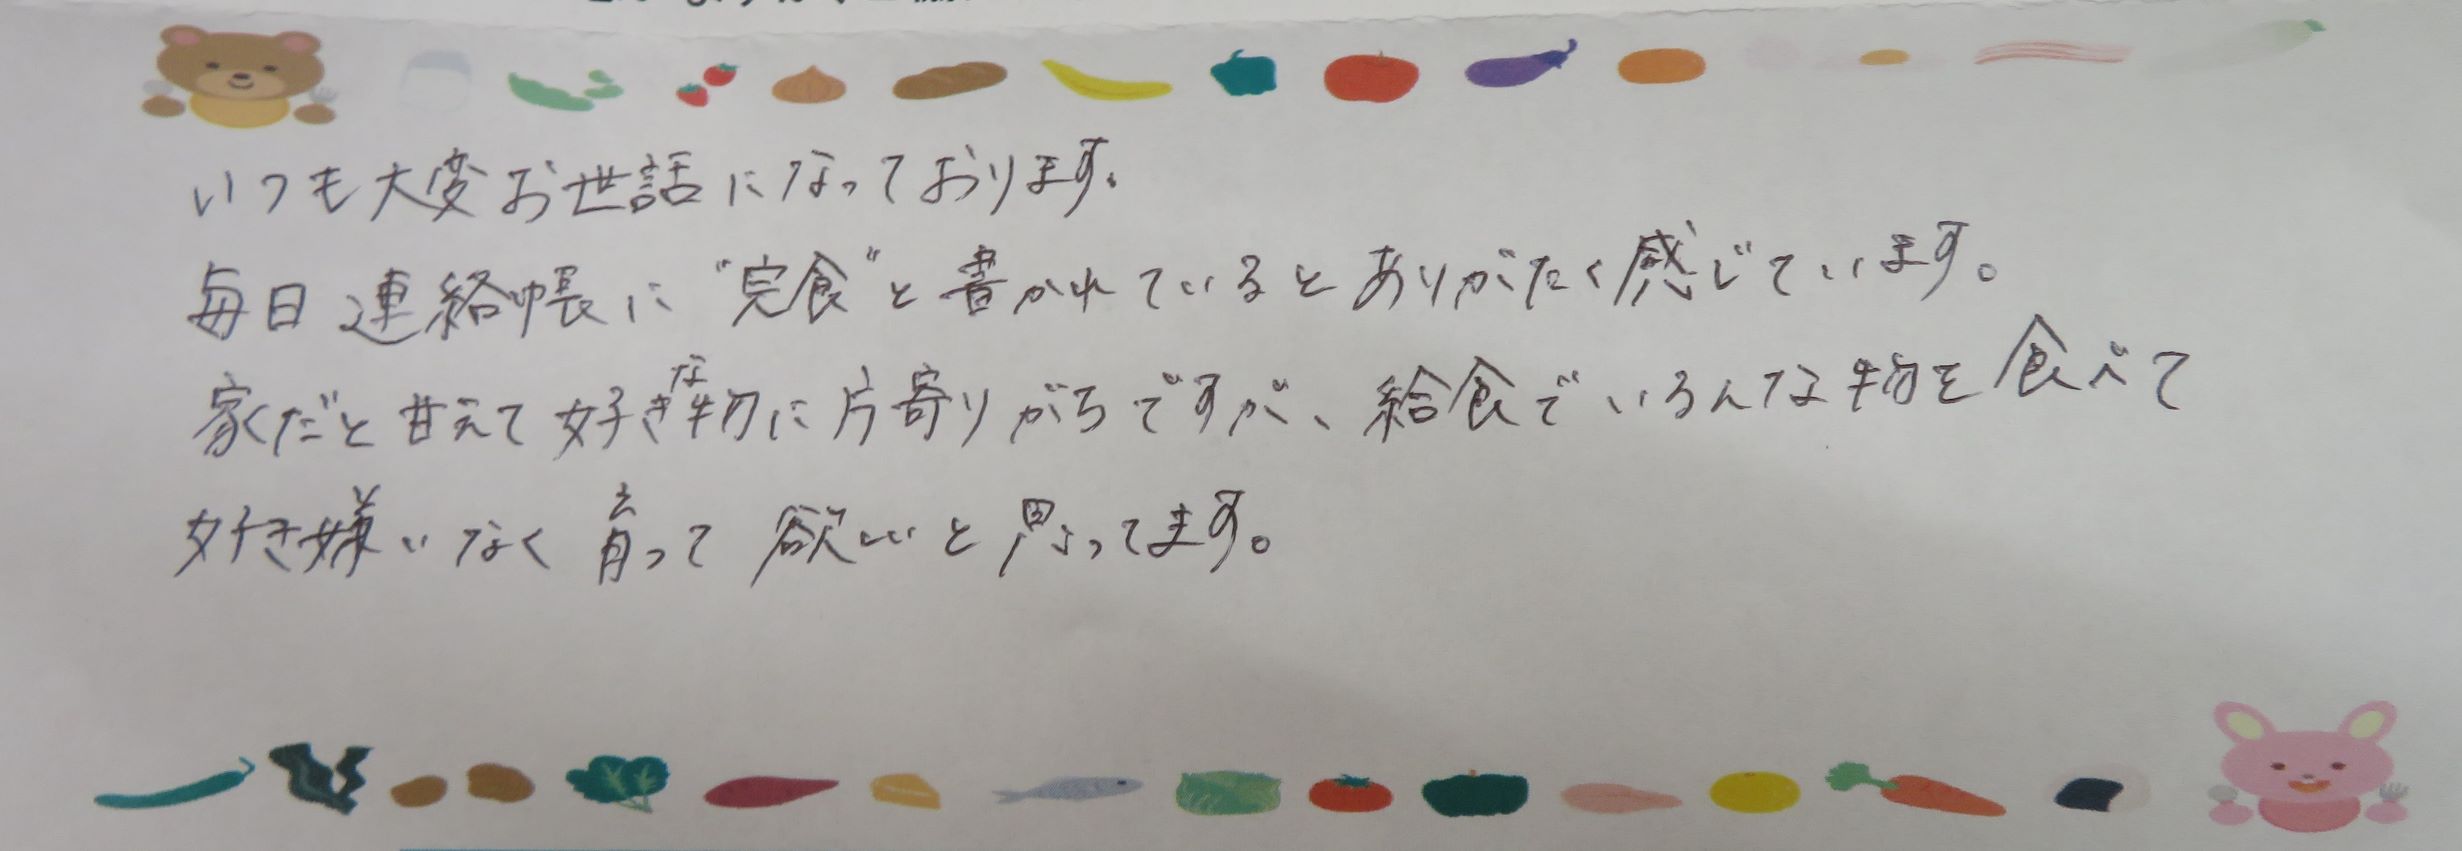 いつも大変お世話になっております。
毎日連絡帳に"完食"と書かれているとありがたく感じています。
家だと甘えて好きな物に片寄りがちですが、給食でいろんな物を食べて
好き嫌いなく育って欲しいと思ってます。